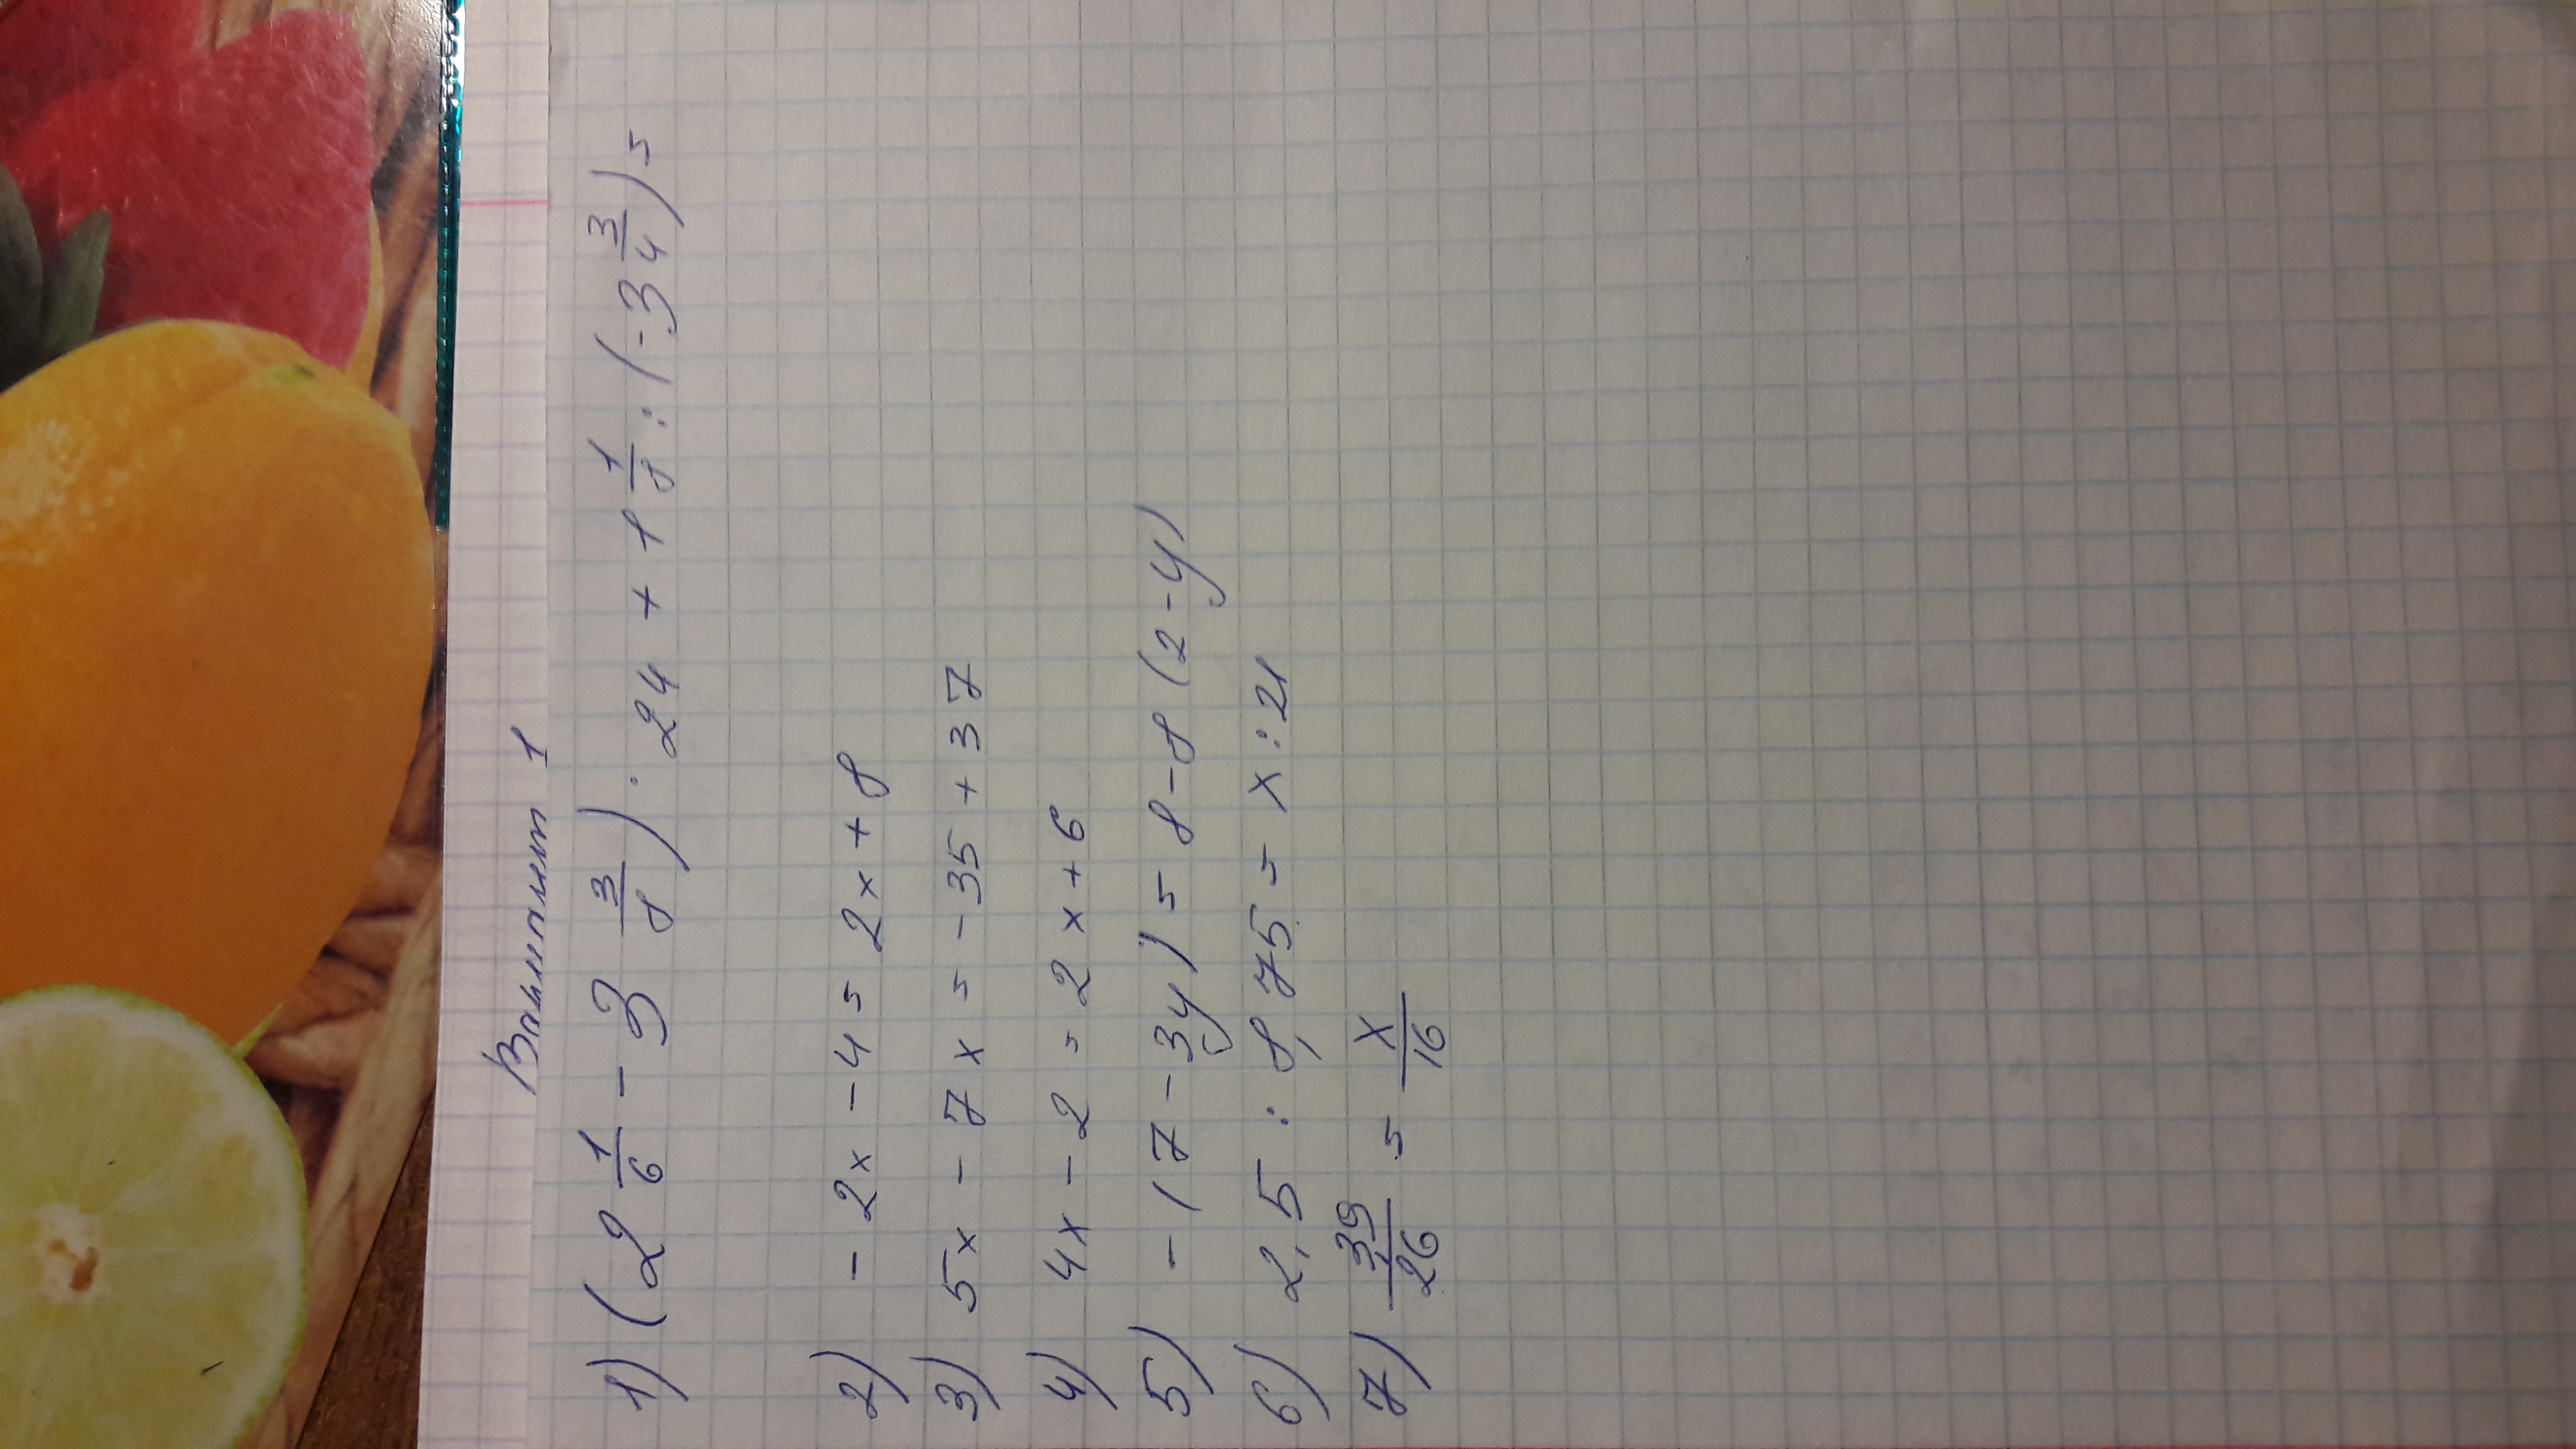 Вариант 1
1) (2 1/6 - 3 3/8) · 24 + 1 1/8 : (-3 3/4) =
2) - 2x - 4 = 2x + 8
3) 5x - 7x = - 35 + 37
4) 4x - 2 = 2x + 6
5) - (7 - 3y) = 8 - 8 (2 - y)
6) 2,5 : 8,75 = x : 21
7) 39/26 = x/16